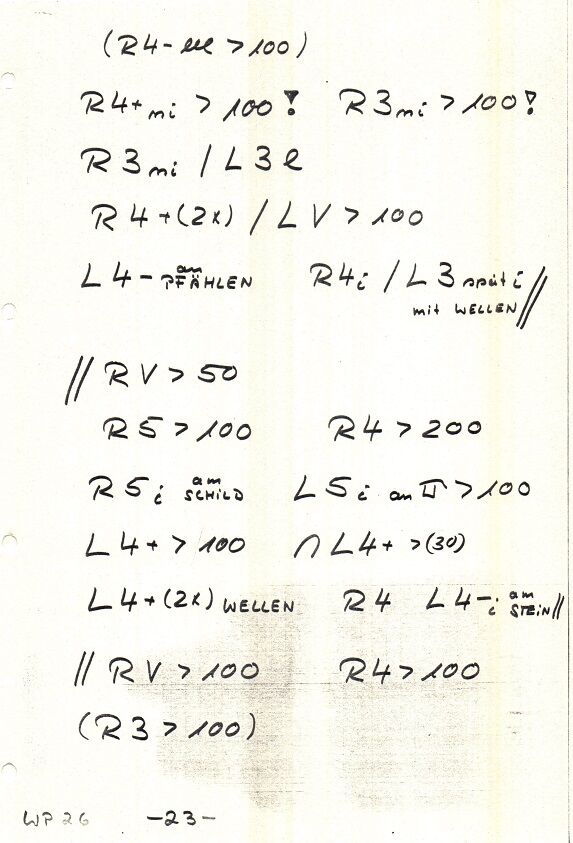 (R4-lll > 100)
R4+ni > 100! R3ni > 100!
R3ni / L3l
R4+(2x) / LV > 100
L4- am PFÄHLEN R4i / L3 spät i mit WELLEN //
// RV > 50
R5 > 100 R4 > 200
R5i am SCHILD L5i an > 100
L4+ > 100 ∩ L4+ > (30)
L4+(2x) WELLEN R4 L4-i am STEIN //
// RV > 100 R4 > 100
(R3 > 100)
WP 26 -23-